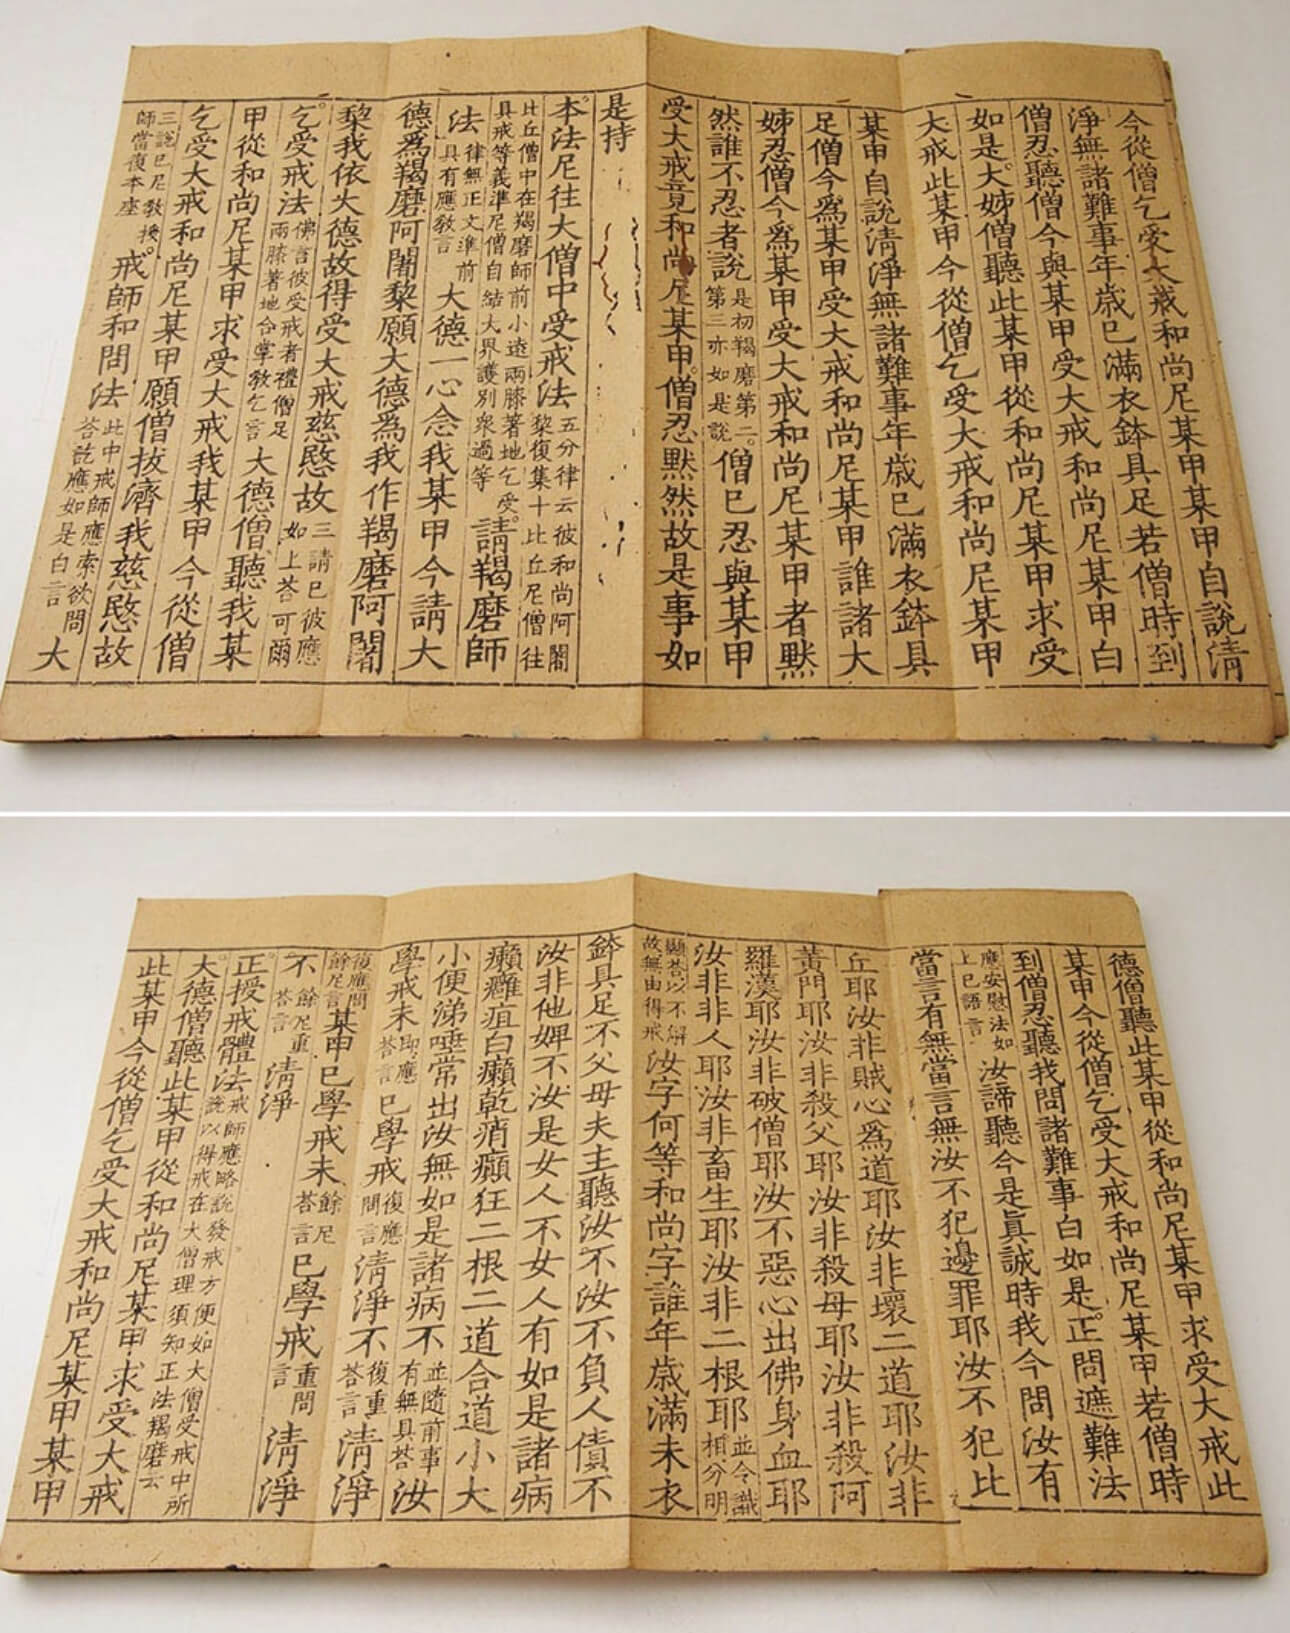 今從僧乞受大戒和尚尼某甲某甲自說清
淨無諸難事年歲已滿衣鉢具足若僧時到
僧忍聽僧今與某甲受大戒和尚尼某甲白
如是大姊僧聽此某甲從和尚尼某甲求受
大戒此某甲今從僧乞受大戒和尚尼某甲
某甲自說清淨無諸難事年歲已滿衣鉢具
足僧今為某甲受大戒和尚尼某甲誰諸大
姊忍僧今為某甲受大戒和尚尼某甲者默
然誰不忍者說是初羯磨第二第三亦如是說僧已忍與某甲
受大戒竟和尚尼某甲僧忍默然故是事如
是持
本法尼往大僧中受戒法五分律云彼和尚阿闍黎復集十比丘尼僧往
比丘僧中在羯磨師前小遠兩膝著地乞受具戒等義準尼僧自結大界護別衆過等請羯磨師
法律無正文準前具有應教言大德一心念我某甲今請大
德為羯磨阿闍黎願大德為我作羯磨阿闍
黎我依大德故得受大戒慈愍故三請已彼應如上荅可爾
乞受戒法佛言彼受戒者禮僧足兩膝著地合掌教乞言大德僧聽我某
甲從和尚尼某甲求受大戒我某甲今從僧
乞受大戒和尚尼某甲願僧拔濟我慈愍故
三說已尼教授師當復本座戒師和問法此中戒師應索欲問荅訖應如是白言大
德僧聽此某甲從和尚尼某甲求受大戒此
某甲今從僧乞受大戒和尚尼某甲若僧時
到僧忍聽我問諸難事白如是正問遮難法
應安慰法如上已語言汝諦聽今是真誠時我今問汝有
當言有無當言無汝不犯邊罪耶汝不犯比
丘耶汝非賊心為道耶汝非壞二道耶汝非
黃門耶汝非殺父耶汝非殺母耶汝非殺阿
羅漢耶汝非破僧耶汝不惡心出佛身血耶
汝非非人耶汝非畜生耶汝非二根耶並令識相分明
顯荅以不解故無由得戒汝字何等和尚字誰年歲滿未衣
鉢具足不父母夫主聽汝不汝不負人債不
汝非他婢不汝是女人不女人有如是諸病
癩癰疽白癩乾痟癲狂二根二道合道小大
小便涕唾常出汝無如是諸病不並隨前事有無具荅汝
學戒未即應荅言已學戒復應問言清淨不復重荅言清淨
復應問餘尼言某甲已學戒未餘尼荅言已學戒重問言清淨
不餘尼重荅言清淨
正授戒體法戒師應略說發戒方便如大僧受戒中所說以得戒在大僧理須知正法羯磨云
大德僧聽此某甲從和尚尼某甲求受大戒
此某甲今從僧乞受大戒和尚尼某甲某甲